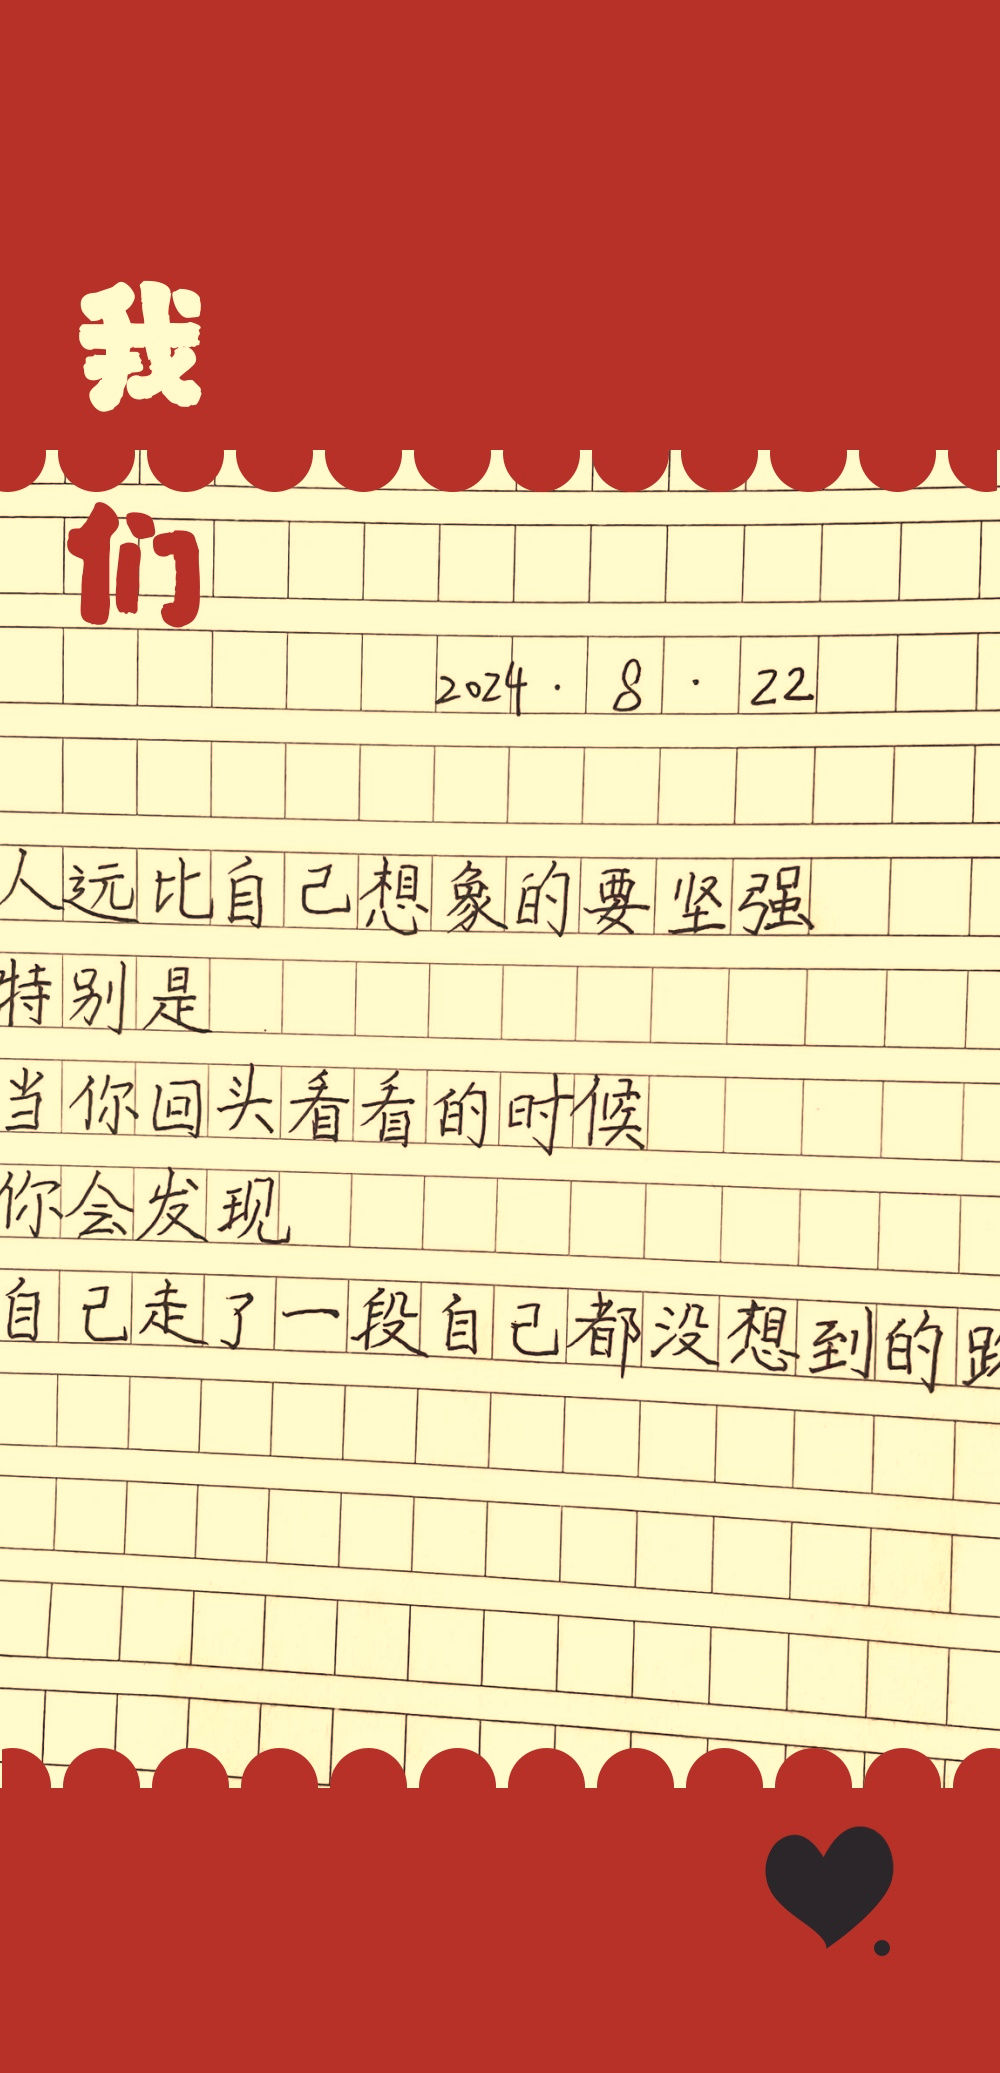 我
们
2024·8·22
人远比自己想象的要坚强
特别是
当你回头看看的时候
你会发现
自己走了一段自己都没想到的路